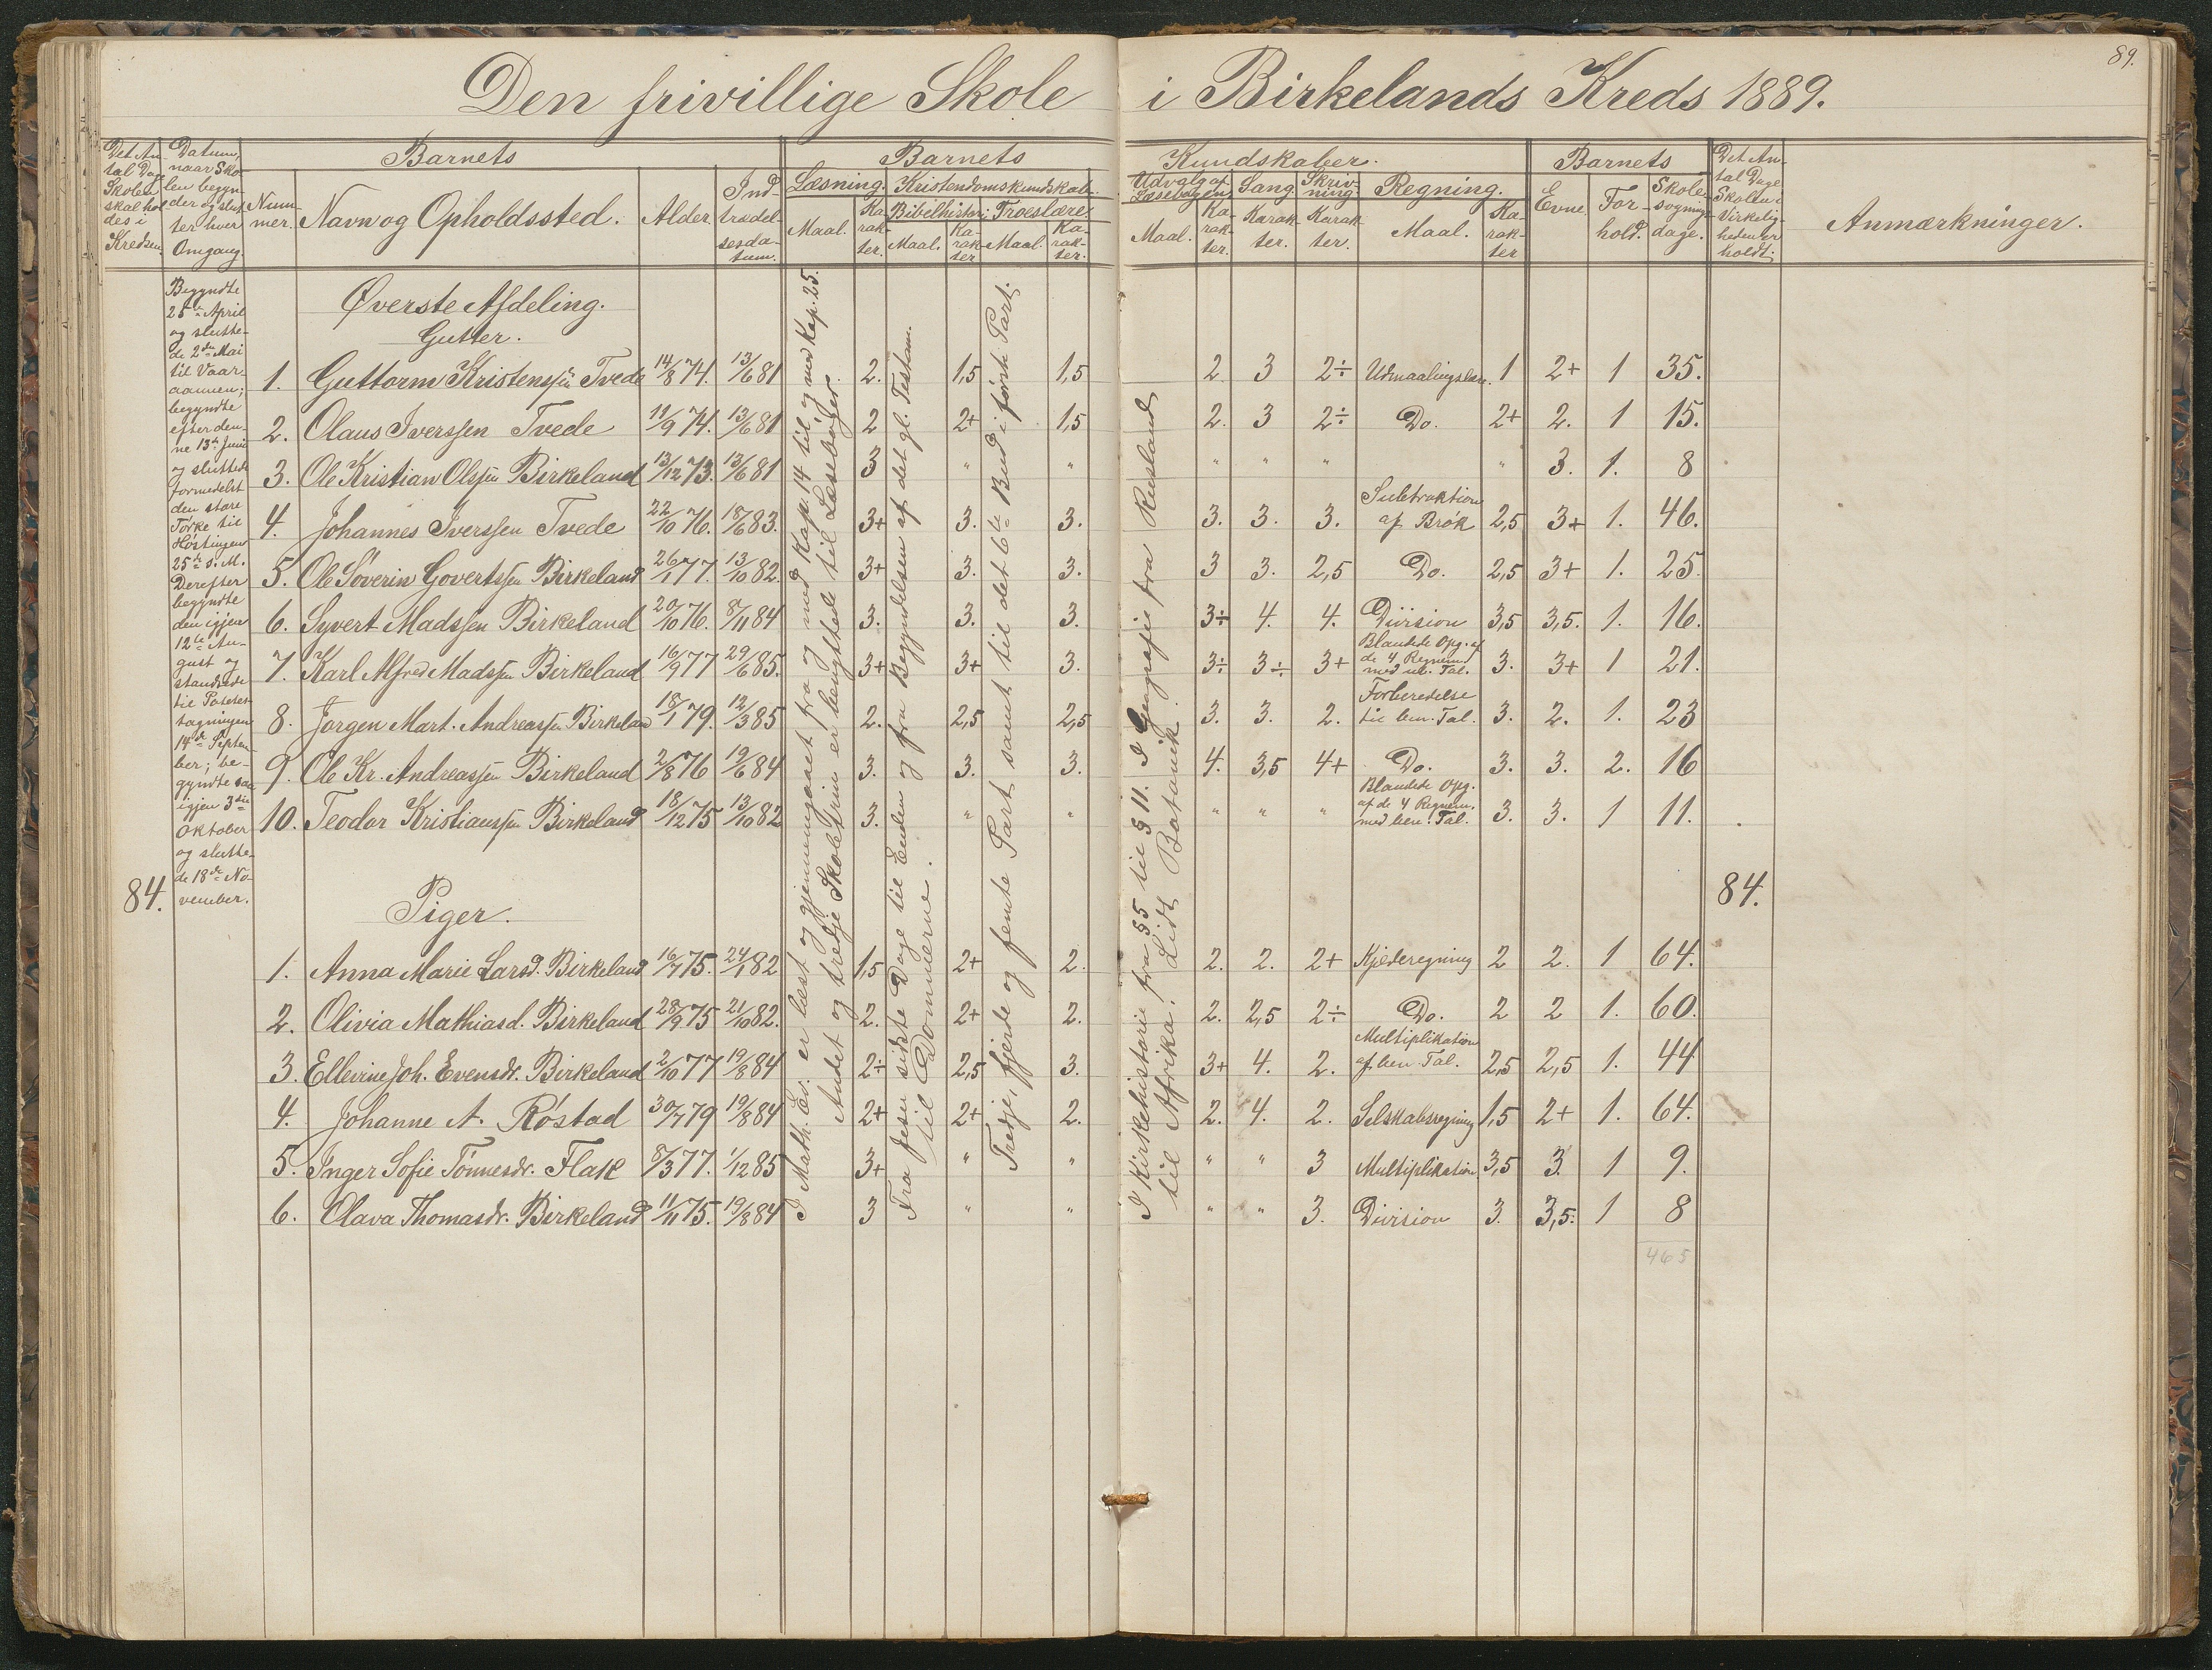 89.
Den frivillige Skole i Birkelands Kreds 1889.
Det An-
tal Dage
Skolen
skal hol
des i
Kredsen.
Datum,
naar Sko-
len begyn-
der og slut-
ter hver
Omgang.
Barnets
Num-
mer.
Navn og Opholdssted.
Alder.
Ind-
trædel-
sesda-
tum.
Barnets Kundskaber.
Læsning.
Maal.
Ka-
rak-
ter.
Kristendomskundskab.
Bibelhistorie
Maal.
Ka-
rak-
ter
Troeslære.
Maal.
Ka-
rak-
ter.
Udvalg af
Læsebogen.
Maal.
Ka-
rak-
ter.
Sang.
Karak-
ter.
Skriv-
ning
Karak-
ter.
Regning.
Maal.
Ka-
rak-
ter
Barnets
Evne.
For-
hold.
Skole-
søgnings-
dage.
Det An-
tal Dage
Skolen i
Virkelig-
heden er
holdt.
Anmærkninger.
Begyndte
25de April
og slutte-
de 2den Mai
til Vaar-
aannen;
begyndte
efter den-
ne 13de Juni
og sluttede
formedelst
den store
Tørke til
Høstingen
25de s. M.
Derefter
begyndte
den igjen
12te Au-
gust og
standsede
til Potetes-
tagningen
14de Septem-
ber; be-
gyndte saa
igjen 3die
Oktober
og slutte-
de 18de No-
vember.
84.
Øverste Afdeling.
Gutter.
1. Guttorm Kristenssen Tvede 14/8 74. 13/6 81 2. 1,5 1,5 2 3 2÷ Udmaalingslære. 1 2+ 1 35.
2. Olaus Iverssen Tvede 11/9 74. 13/6 81 2 2+ 1,5 2. 3 2÷ Do. 2+ 2. 1 15.
3. Ole Kristian Olssen Birkeland 13/12 73. 13/6 81 3 " " " " " " 3. 1. 8
4. Johannes Iverssen Tvede 22/10 76. 18/6 83. 3+ 3. 3. 3. 3. 3. Subtraktion
af Brøk 2,5 3+ 1. 46.
5. Ole Søverin Govertssen Birkeland 26/1 77. 13/10 82. 3+ 3. 3. 3 3. 2,5 Do. 2,5 3+ 1. 25.
6. Syvert Madssen Birkeland 20/10 76. 8/11 84 3. 3. 3. 3÷ 4. 4. Division 3,5 3,5. 1. 16.
7. Karl Alfred Madssen Birkeland 16/9 77 29/6 85. 3+ 3+ 3. 3÷ 3÷ 3+ Blandede Opg. af
de 4 Regnem.
med ub. Tal. 3. 3+ 1 21.
8. Jørgen Mart. Andreassen Birkeland 18/1 79. 12/3 85 2. 2,5 2,5 3. 3. 2. Forberedelse
til ben. Tal. 3. 2. 1. 23
9. Ole Kr. Andreassen Birkeland 2/8 76 19/6 84 3. 3. 3. 4. 3,5 4+ Do. 3. 3. 2. 16
10. Teodor Kristianssen Birkeland 18/12 75 13/10 82 3. " " " " " Blandede Opg.
af de 4 Regnem.
med ben. Tal. 3. 3. 1 11.
84.
Piger.
1. Anna Marie Larsd. Birkeland 16/7 75. 24/1 82 1,5 2+ 2. 2. 2. 2+ Kjæderegning 2 2. 1 64.
2. Olivia Mathiasd. Birkeland 28/9 75 21/10 82. 2. 2+ 2. 2. 2,5 2÷ Do. 2 2 1. 60.
3. Ellevine Joh. Evensdr. Birkeland 2/10 77 19/8 84 2÷ 2,5 3. 3+ 4. 2. Multiplikation
af ben. Tal. 2,5 2,5 1. 44
4. Johanne A. Røstad 30/7 79 19/8 84 2+ 2+ 2. 2. 4. 2. Selskabsregning 1,5 2+ 1. 64.
5. Inger Sofie Tønnesdr. Flak 8/3 77. 1/12 85 3+ " " " " 3 Multiplikation 3,5 3. 1 9.
6. Olava Thomasdr. Birkeland 11/11 75. 19/8 84 3 " " " " 3. Division 3. 3,5. 1 8
465
I Math. Ev. er læst og gjennemgaaet fra og med Kap. 14 til og med Kap. 25.
Andet og tredje Skoletrin er benyttede til Læsebøger.
Fra Jesu sidste Dage til Enden og fra Begyndelsen af det gl. Testam.
til Dommerne.
Tredje, fjerde og femte Part samt til det 6te Bud i første Part.
I Kirkehistorie fra § 5 til § 11. I Geografi fra Rusland
til Afrika. Lidt Botanik.